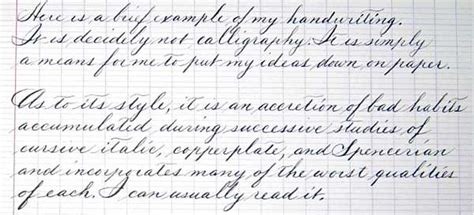 Here is a brief example of my handwriting.
It is decidely not calligraphy. It is simply
a means for me to put my ideas down on paper.
As to its style, it is an accretion of bad habits
accumulated during successive studies of
cursive italic, copperplate, and Spencerian
and incorporates many of the worst qualities
of each. I can usually read it.